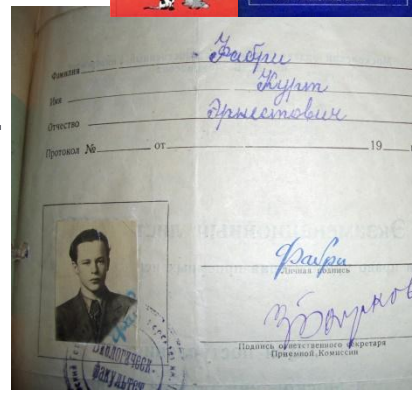 Фамилия Фабри
Имя Курт
Отчество Эрнестович
Протокол № от 19
Экзаменационный
Фабри
Личная подпись
Подпись ответственного секретаря
Приемной Комиссии
Биологическ
факультет